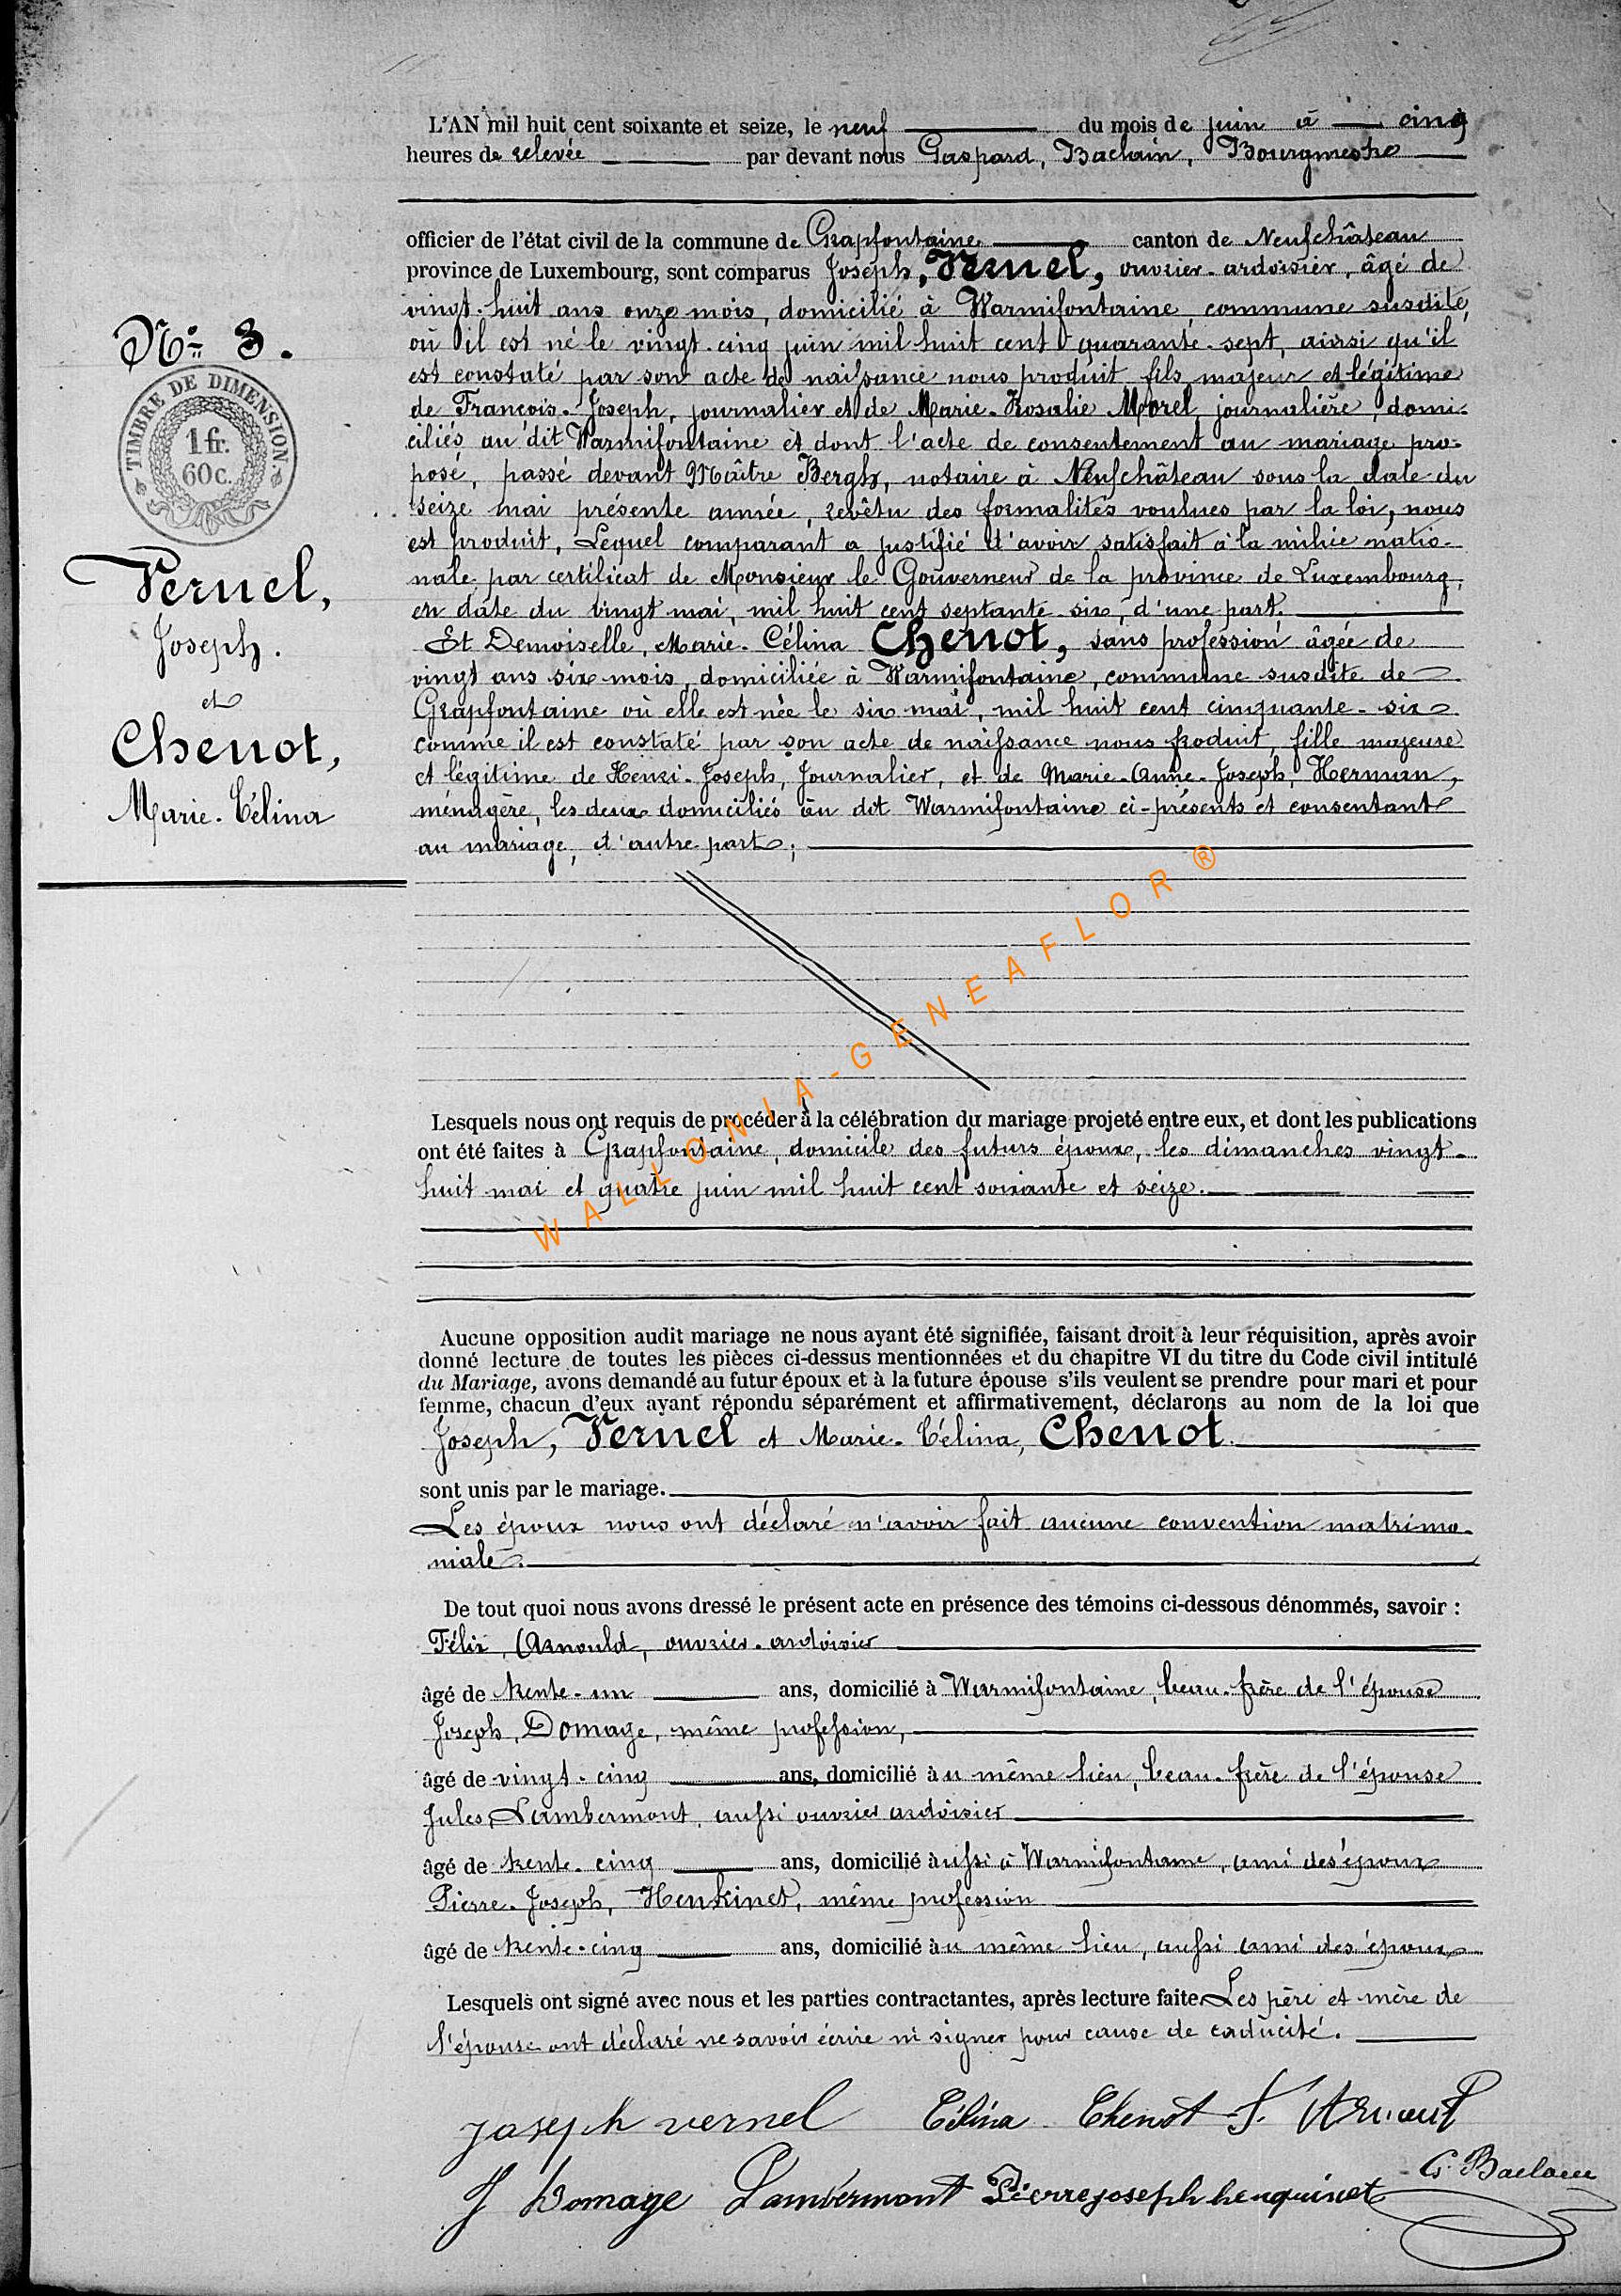 L'AN mil huit cent soixante et seize, le neuf du mois de juin à cinq
heures de relevée par devant nous Gaspard, Baclain, Bourgmestre
officier de l'état civil de la commune de Grapfontaine canton de Neufchâteau
province de Luxembourg, sont comparus Joseph, Vernel, ouvrier-ardoisier, âgé de
vingt-huit ans onze mois, domicilié à Warmifontaine, commune susdite,
où il est né le vingt-cinq juin mil huit cent quarante-sept, ainsi qu'il
est constaté par son acte de naissance nous produit fils majeur et légitime
de François-Joseph, journalier et de Marie-Rosalie Morel, journalière, domi-
ciliés au dit Warmifontaine et dont l'acte de consentement au mariage pro-
posé, passé devant Maître Bergh, notaire à Neufchâteau sous la date du
seize mai présente année, revêtu des formalités voulues par la loi, nous
est produit, Lequel comparant a justifié d'avoir satisfait à la milice natio-
nale par certificat de Monsieur le Gouverneur de la province de Luxembourg,
en date du vingt mai, mil huit cent septante-six, d'une part.
Et Demoiselle, Marie-Célina Chenot, sans profession âgée de
vingt ans six mois, domiciliée à Warmifontaine, commune susdite de
Grapfontaine où elle est née le six mai, mil huit cent cinquante-six
comme il est constaté par son acte de naissance nous produit, fille majeure
et légitime de Henri-Joseph, Journalier, et de Marie-Anne-Joseph, Herman,
ménagère, les deux domiciliés au dit Warmifontaine ci-présents et consentant
au mariage, d'autre part;
N° 3.
TIMBRE DE DIMENSION
1 fr.
60 c.
Vernel,
Joseph.
et
Chenot,
Marie-Célina
WALLONIA-GENEAFLOR ®
Lesquels nous ont requis de procéder à la célébration du mariage projeté entre eux, et dont les publications
ont été faites à Grapfontaine, domicile des futurs époux, les dimanches vingt-
huit mai et quatre juin mil huit cent soixante et seize.
Aucune opposition audit mariage ne nous ayant été signifiée, faisant droit à leur réquisition, après avoir
donné lecture de toutes les pièces ci-dessus mentionnées et du chapitre VI du titre du Code civil intitulé
du Mariage, avons demandé au futur époux et à la future épouse s'ils veulent se prendre pour mari et pour
femme, chacun d'eux ayant répondu séparément et affirmativement, déclarons au nom de la loi que
Joseph, Vernel et Marie-Célina, Chenot.
sont unis par le mariage.
Les époux nous ont déclaré n'avoir fait aucune convention matrimo-
niale.
De tout quoi nous avons dressé le présent acte en présence des témoins ci-dessous dénommés, savoir :
Félix, Arnould, ouvrier-ardoisier
âgé de trente-un ans, domicilié à Warmifontaine, beau-frère de l'épouse
Joseph, Domage, même profession,
âgé de vingt-cinq ans, domicilié au même lieu, beau-frère de l'épouse
Jules, Lambermont, aussi ouvrier ardoisier
âgé de trente-cinq ans, domicilié aussi à Warmifontaine, ami des époux
Pierre-Joseph, Henkinet, même profession
âgé de trente-cinq ans, domicilié au même lieu, aussi ami des époux
Lesquels ont signé avec nous et les parties contractantes, après lecture faite Les père et mère de
l'épouse ont déclaré ne savoir écrire ni signer pour cause de caducité.
Joseph vernel Célina Chenot F. Arnould
J Domage Lambermont Pierre joseph henquinet G. Baclain